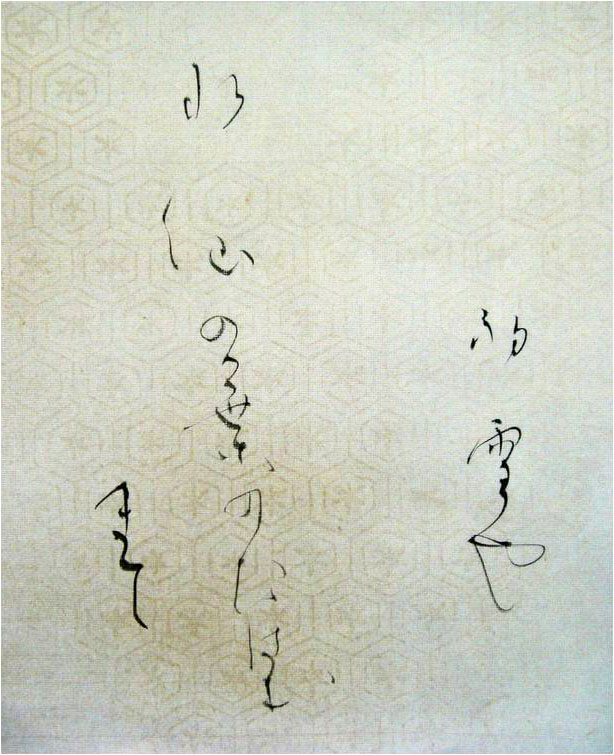 初雪や
水仙の葉のたはむ
まで